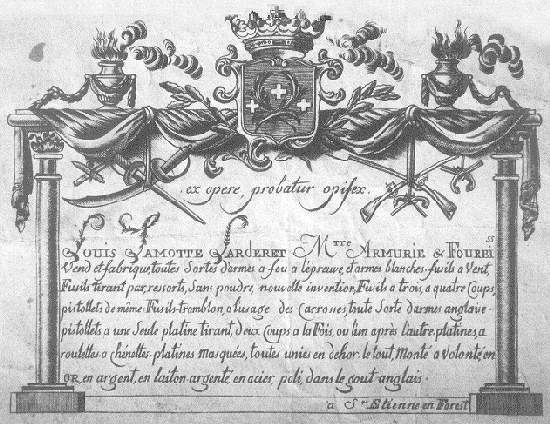 ex opere probatur opifex.
Louis Lamotte Larderet Mtre Armurié & Fourbi ss
Vend et fabrique, toutes Sortes d'armes a feu a lépreuve, d'armes blanches fusils a Vent,
Fusils tirant par, ressorts, Sans poudre, nouvelle invention, Fusils a trois, a quatre Coups,
pistollets de même. Fusils tromblon, a lusage des Carosses, toute Sorte d'armes anglaise
pistollets a une Seule platine tirant, deux Coups a la Fois, ou l'un après l'autre, platines, a
roulettes a chenettes platines masquées, toutes unies en dehor. le tout, Monté a Volonté, en
or, en argent, en laiton argenté, en acier poli, dans le gout anglais.
à St. Etienne en Forest